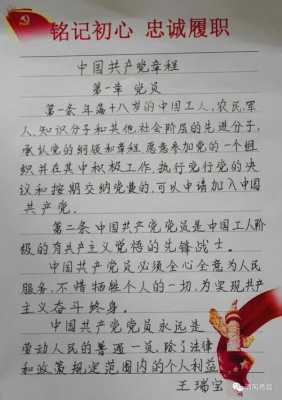 铭记初心 忠诚履职
中国共产党章程
第一章 党员
第一条 年届十八岁的中国工人，农民，军
人，知识分子和其他社会阶层的先进分子，
承认党的纲领和章程，愿意参加党的一个组
织并在其中积极工作，执行党的决
议和按期交纳党费的，可以申请加入中国
共产党。
第二条 中国共产党党员是中国工人阶
级的有共产主义觉悟的先锋战士。
中国共产党员必须全心全意为人民
服务，不惜牺牲个人的一切，为实现共产
主义奋斗终身。
中国共产党党员永远是
劳动人民的普通一员，除了法律
和政策规定范围内的个人利益
王瑞宝